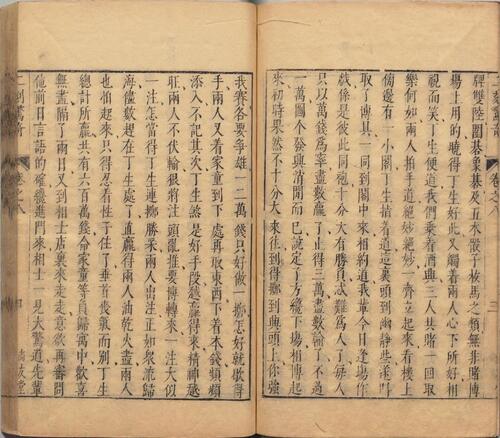 牌雙陸圍碁象碁及五木骰子枚馬之類無非賭博
場上用的曉得丁生好此又觸着兩人心下所好相
視而笑丁生便道我們乘着酒興三人共賭一回取
樂何如兩人拍手道絶妙絶妙一齊立起來看樓上
傍邊有一小閣丁生指着道這裏頭到幽靜些遂
取了博具一同到閣中來相約道我輩今日逢塲作
戲係是彼此同袍十分大有勝負忒難爲人了每人
只以萬錢爲率盡數贏了止得三萬盡數輸了不過
一萬圖个發興消閒而已說定了方纔下塲相博起
來初時果然不十分大來往到得擲到興頭上你强
我賽各要爭雄一二萬錢只好做一擲怎好就歇得
手兩人又着家童到下處再取東西下着本錢頻頻
添入不記其次丁生煞是好手段越贏得來精神越
旺兩人不伏輸狠將注頭亂推要博轉來一注大似
一注怎當得丁生連擲勝采兩人出注正如衆流歸
海儘數趕在丁生處了直贏得兩人油乾火盡兩人
也怕起來只得忍着性子住了垂首喪氣而别丁生
總計所贏共有六百萬錢命家童等負歸寓中歡喜
無盡隔了兩日又到相士店裏來走走意欲再審問
他前日言語的確纔進門來相士一見大驚道先輩
二刻驚奇
卷之八
尚友堂